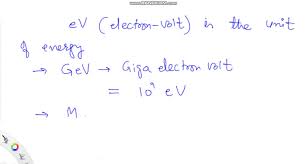 eV (electron-volt) is the unit
of energy
→ GeV → Giga electron volt
= 10⁹ eV
→ M